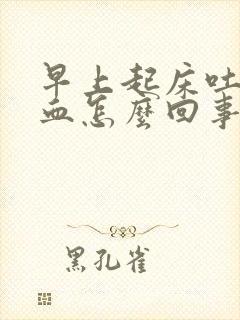 早上起床吐
血怎麼回事
黑孔雀